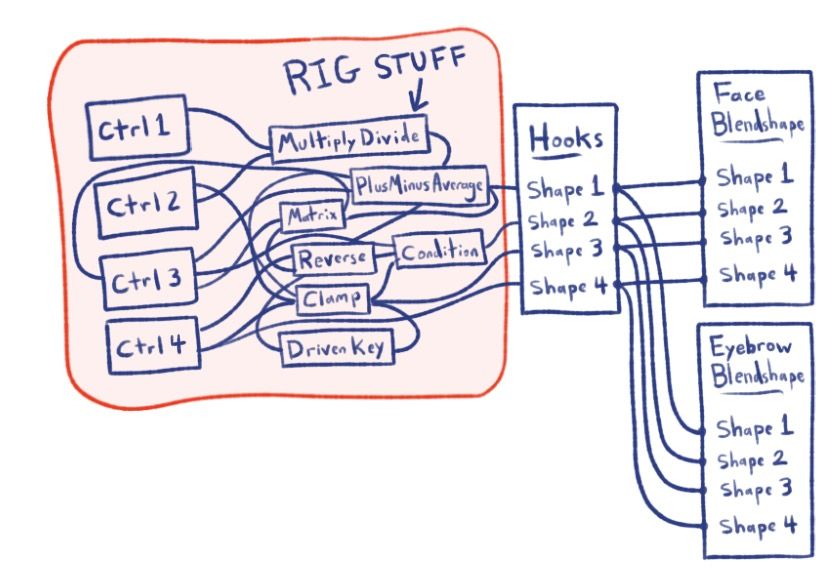 RIG STUFF
Ctrl 1
Ctrl 2
Ctrl 3
Ctrl 4
Multiply Divide
PlusMinusAverage
Matrix
Reverse
Condition
Clamp
Driven Key
Hooks
Shape 1
Shape 2
Shape 3
Shape 4
Face
Blendshape
Shape 1
Shape 2
Shape 3
Shape 4
Eyebrow
Blendshape
Shape 1
Shape 2
Shape 3
Shape 4